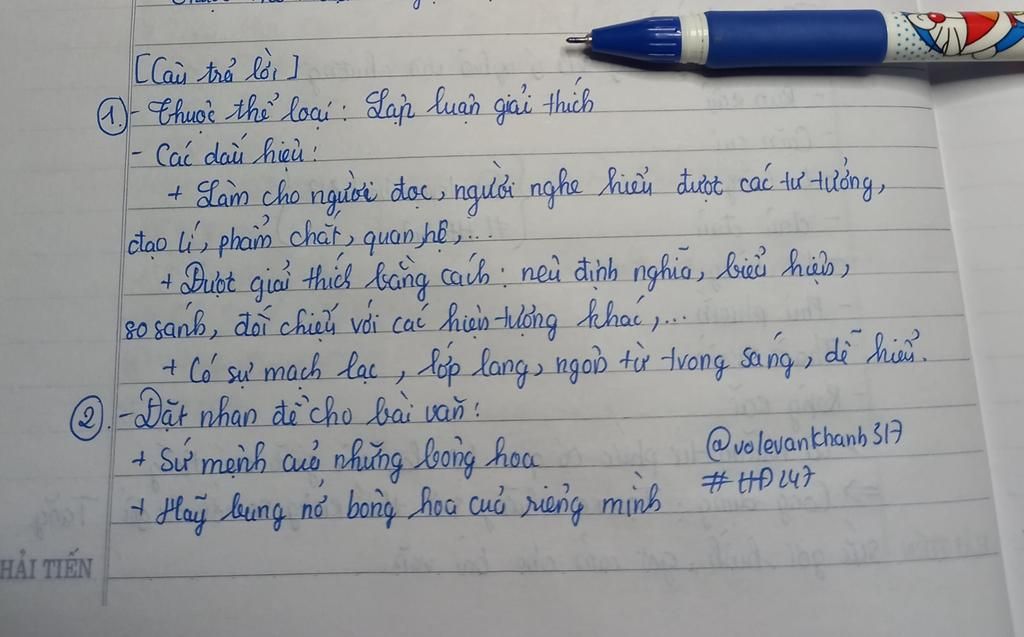 [Câu trả lời]
① - Thuộc thể loại: Lập luận giải thích
- Các dấu hiệu:
+ Làm cho người đọc, người nghe hiểu được các tư tưởng,
đạo lí, phẩm chất, quan hệ,...
+ Được giải thích bằng cách: nêu định nghĩa, biểu hiện,
so sánh, đối chiếu với các hiện tượng khác,...
+ Có sự mạch lạc, lớp lang, ngôn từ trong sáng, dễ hiểu.
②. - Đặt nhan đề cho bài văn:
+ Sứ mệnh của những bông hoa
@volevankhanh317
#HĐ247
+ Hãy bung nở bông hoa của riêng mình
HẢI TIẾN